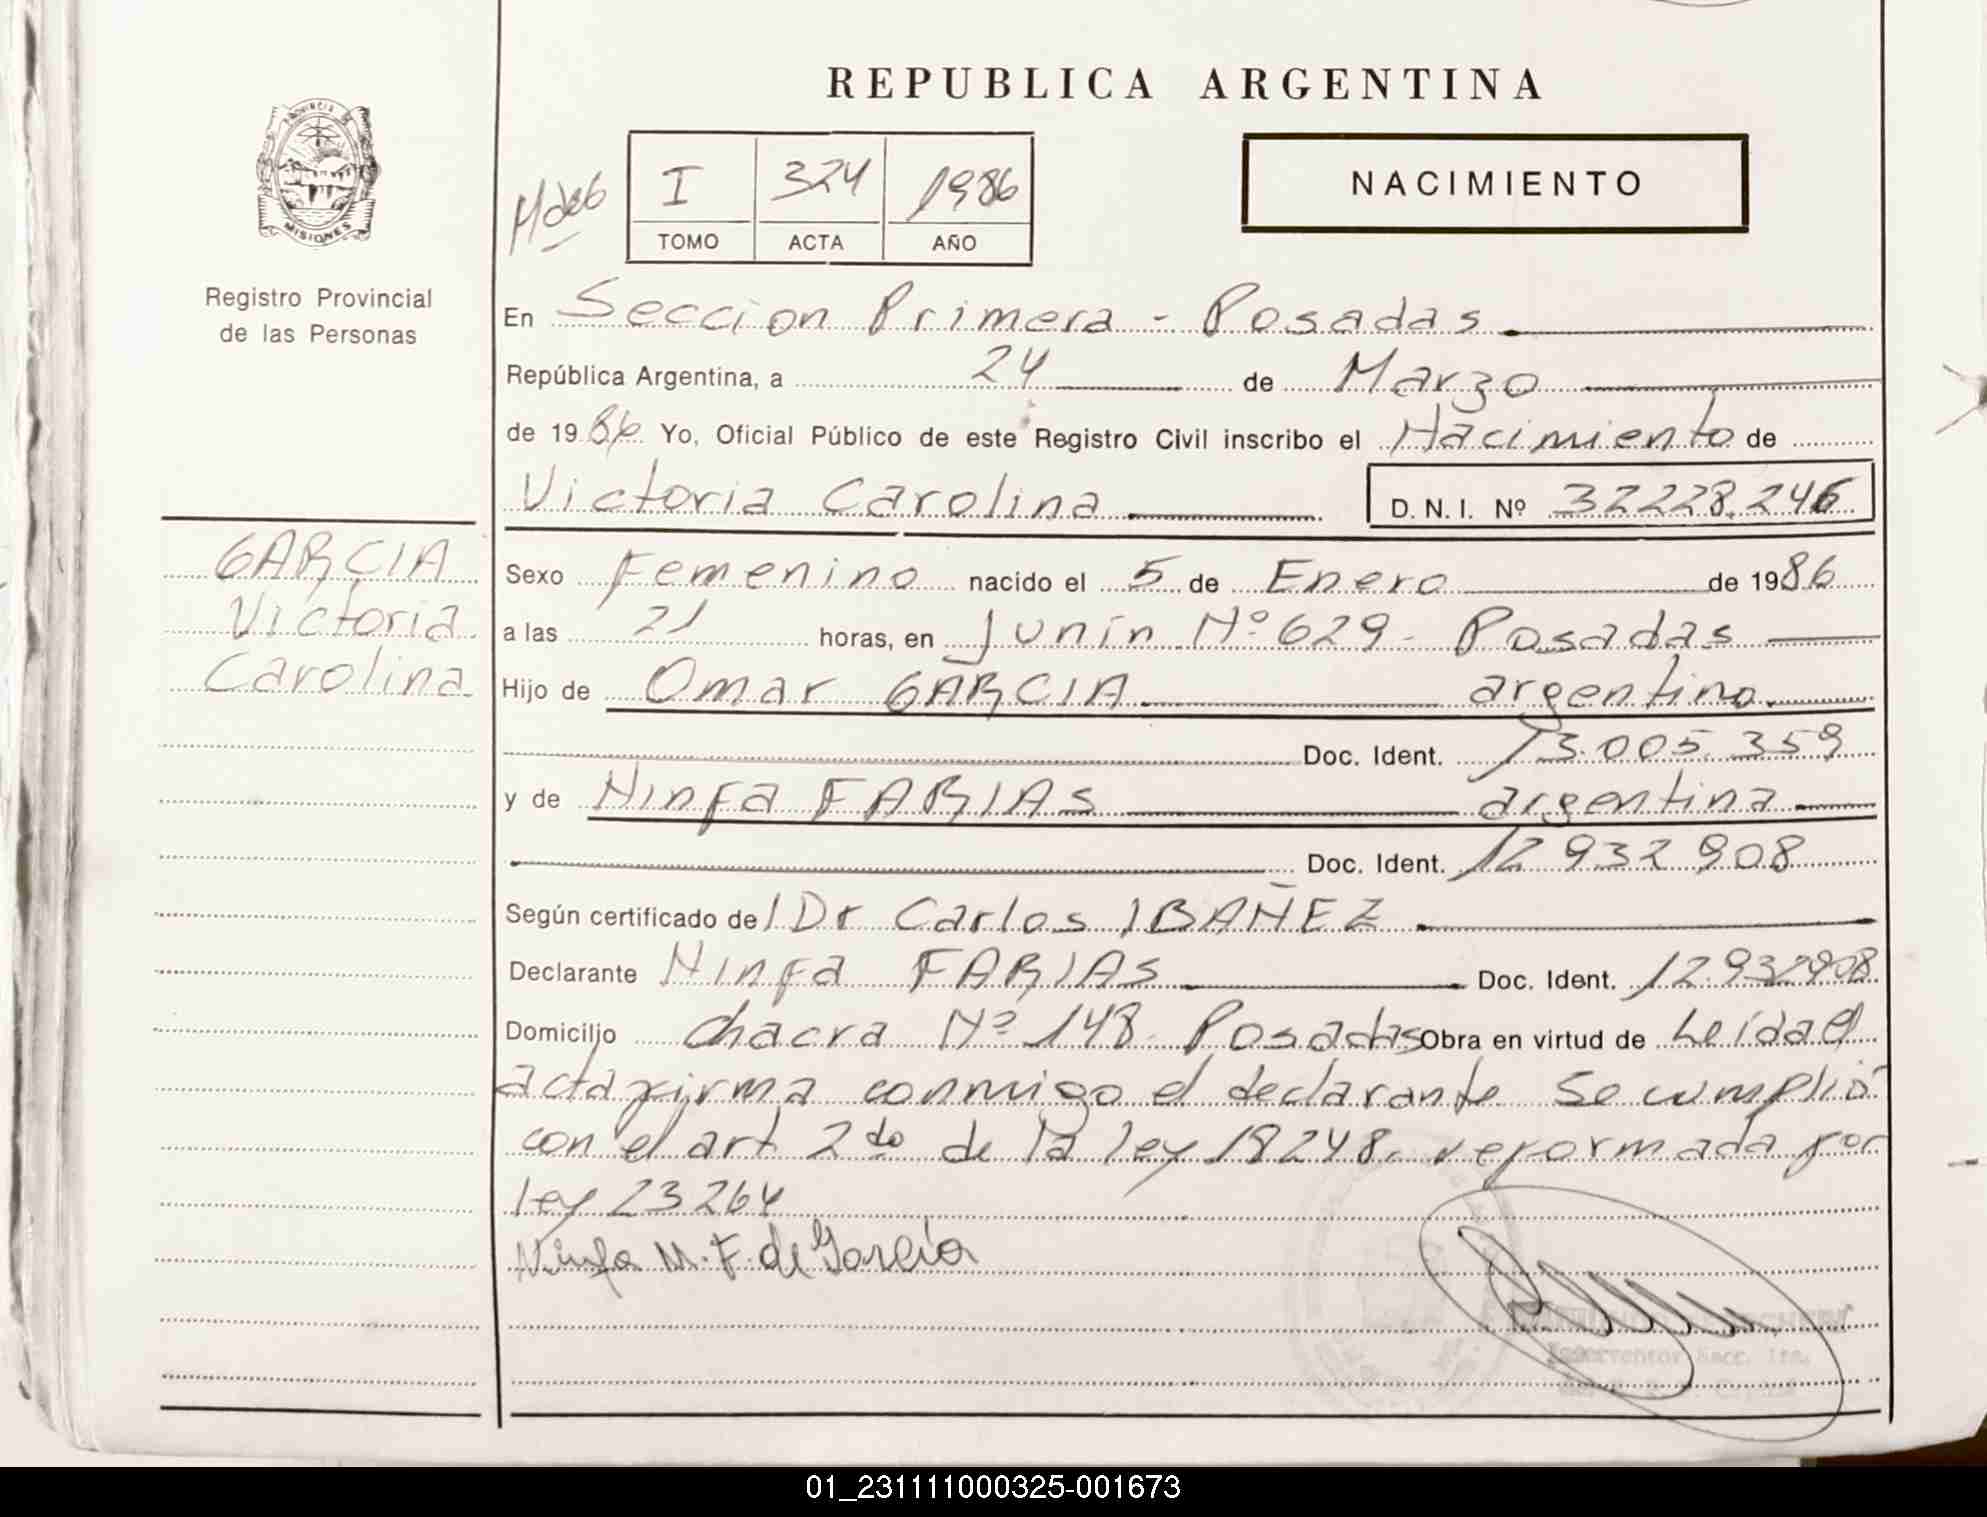 REPUBLICA ARGENTINA
PROVINCIA DE
MISIONES
Registro Provincial
de las Personas
I 324 1986
TOMO ACTA AÑO
NACIMIENTO
En Seccion Primera - Posadas
República Argentina, a 24 de Marzo
de 1986 Yo, Oficial Público de este Registro Civil inscribo el Nacimiento de
Victoria Carolina D.N.I. Nº 32228.246
GARCIA
Victoria
Carolina
Sexo Femenino nacido el 5 de Enero de 1986
a las 21 horas, en Junín Nº 629 - Posadas
Hijo de Omar GARCIA argentino
Doc. Ident. 13.005.359
y de Ninfa FARIAS argentina
Doc. Ident. 12 932 908
Según certificado de Dr Carlos IBAÑEZ
Declarante Ninfa FARIAS Doc. Ident. 12.932908
Domicilio Chacra Nº 148 - Posadas Obra en virtud de Leída el
acta firma conmigo el declarante Se cumplió
con el art 2do de la ley 18248. reformada por
ley 23264
Ninfa M. F. de García
Interventor Secc. 1ra.
01_231111000325-001673